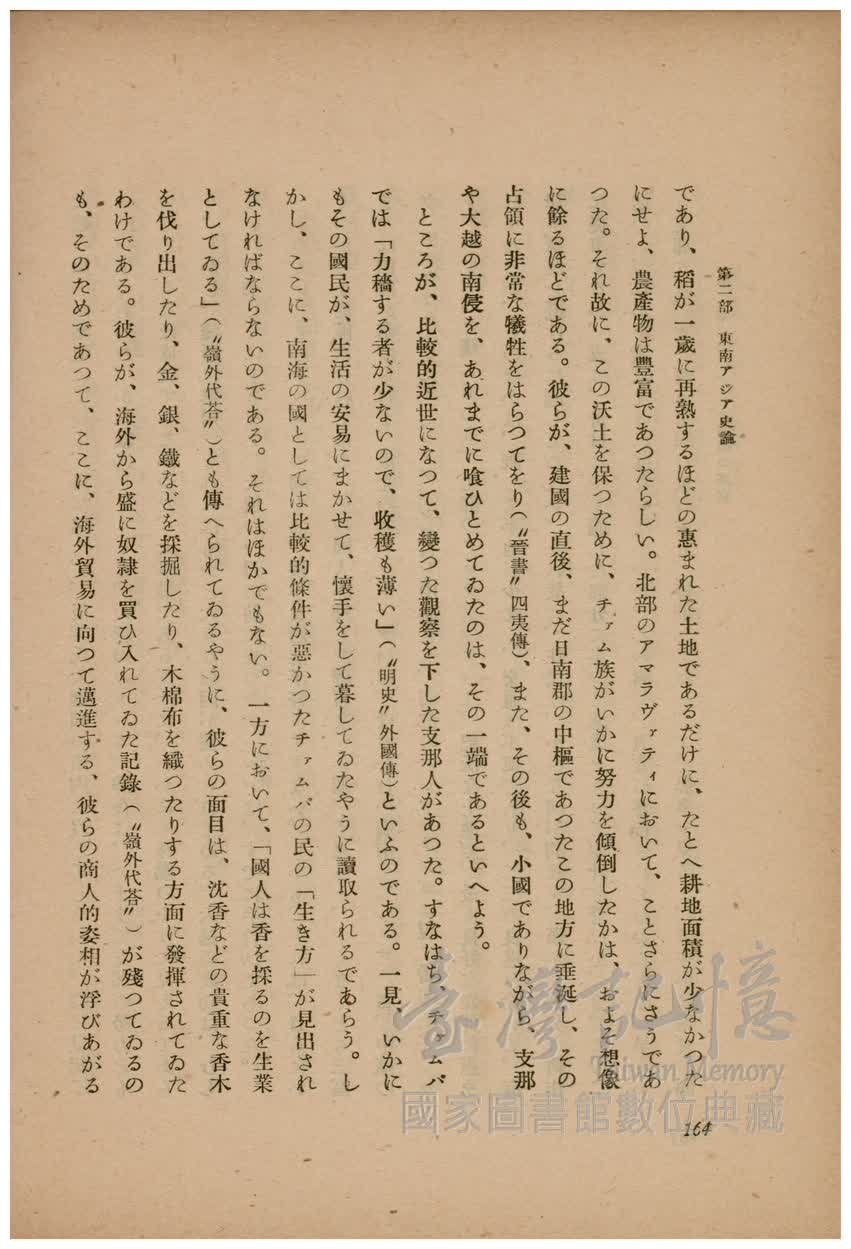 第二部 東南アジア史論
であり、稻が一歲に再熟するほどの惠まれた土地であるだけに、たとへ耕地面積が少なかつた
にせよ、農產物は豐富であつたらしい。北部のアマラヴァティにおいて、ことさらにさうであ
つた。それ故に、この沃土を保つために、チァム族がいかに努力を傾倒したかは、およそ想像
に餘るほどである。彼らが、建國の直後、まだ日南郡の中樞であつたこの地方に垂涎し、その
占領に非常な犧牲をはらつてをり(〝晉書〟四夷傳)、また、その後も、小國でありながら、支那
や大越の南侵を、あれまでに喰ひとめてゐたのは、その一端であるといへよう。
ところが、比較的近世になつて、變つた觀察を下した支那人があつた。すなはち、チァムパ
では「力穡する者が少ないので、收穫も薄い」(〝明史〟外國傳)といふのである。一見、いかに
もその國民が、生活の安易にまかせて、懷手をして暮してゐたやうに讀取られるであらう。し
かし、ここに、南海の國としては比較的條件が惡かつたチァムパの民の「生き方」が見出され
なければならないのである。それはほかでもない。一方において、「國人は香を採るのを生業
としてゐる」(〝嶺外代荅〟)とも傳へられてゐるやうに、彼らの面目は、沈香などの貴重な香木
を伐り出したり、金、銀、鐵などを採掘したり、木棉布を織つたりする方面に發揮されてゐた
わけである。彼らが、海外から盛に奴隷を買ひ入れてゐた記錄(〝嶺外代荅〟)が殘つてゐるの
も、そのためであつて、ここに、海外貿易に向つて邁進する、彼らの商人的姿相が浮びあがる
164
臺灣記憶
Taiwan Memory
國家圖書館數位典藏